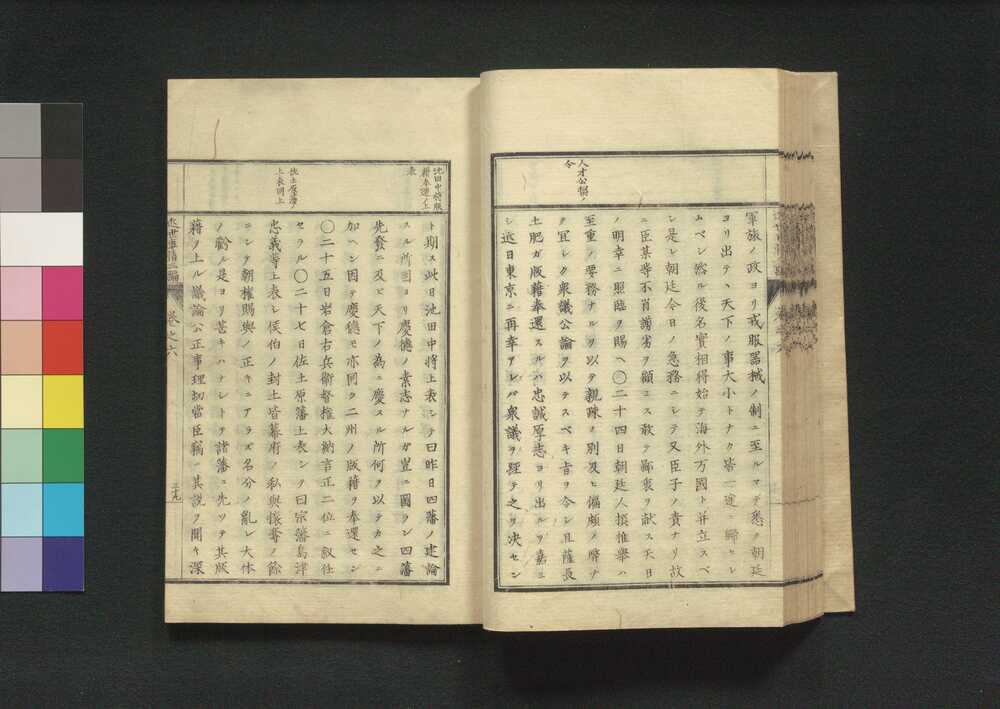 人才公撰ノ
令
軍旅ノ政ヨリ戎服器械ノ制ニ至ルマテ悉ク朝廷
ヨリ出テ、天下ノ事大小トナク皆一途ニ歸セシ
ムベシ然ル後名實相得始テ海外万國ト并立スベ
シ是レ朝廷今日ノ急務ニシテ又臣子ノ責ナリ故
ニ臣某等不肖謭劣ヲ顧ミス敢テ鄙衷ヲ献ス天日
ノ明幸ニ照臨ヲ賜ヘ〇二十四日朝廷人撰推擧ハ
至重ノ要務ナルヲ以テ親疎ノ別及ヒ偏頗ノ弊ナ
ク宜シク衆議公論ヲ以テスベキ旨ヲ令シ且薩長
土肥ガ版籍奉還スルハ忠誠厚志ヨリ出ルヲ嘉ミ
シ近日東京ニ再幸アレバ衆議ヲ經テ之ヲ決セン
池田中将版
籍奉還ノ上
表
佐土原藩ノ
上表同上
ト期ス此日池田中将上表シテ曰昨日四藩ノ建論
スル所固ヨリ慶德ノ素志ナルガ豈ニ圖ラン四藩
先發ニ及ビ天下ノ為ニ慶スル所何ヲ以テカ之ニ
加ヘン因テ慶德モ亦同ク二州ノ版籍ヲ奉還セン
〇二十五日岩倉右兵衛督權大納言正二位ニ叙任
セラル〇二十七日佐土原藩上表シテ曰宗藩島津
忠義等上表シ侯伯ノ封土皆幕府ノ私與攘奪ノ餘
ニシテ朝権賜與ノ正キニアラズ名分ノ亂レ大体
ノ虧ル是ヨリ甚キハナシトテ諸藩ニ先ツテ其版
籍ノ上ル議論公正事理切當臣竊ニ其説ヲ聞キ深
近世事情二編
卷之六
二十九